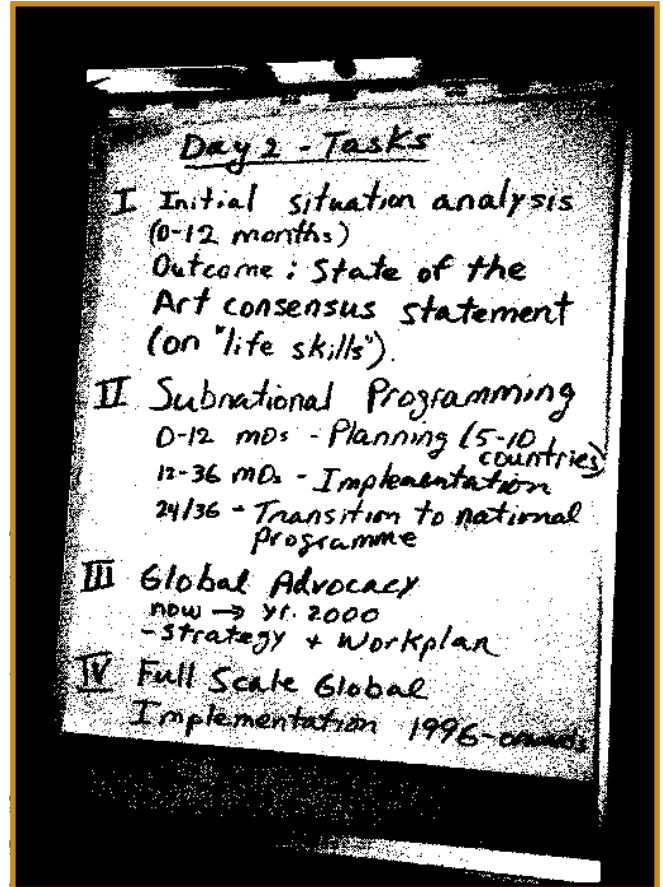 Day 2 - Tasks
I Initial situation analysis
(0-12 months)
Outcome: State of the
Art consensus statement
(on "life skills").
II Subnational Programming
0-12 mos - Planning (5-10
countries)
12-36 mos - Implementation
24/36 - Transition to national
Programme
III Global Advocacy
now → yr. 2000
- Strategy + Workplan
IV Full Scale Global
Implementation 1996-onwards